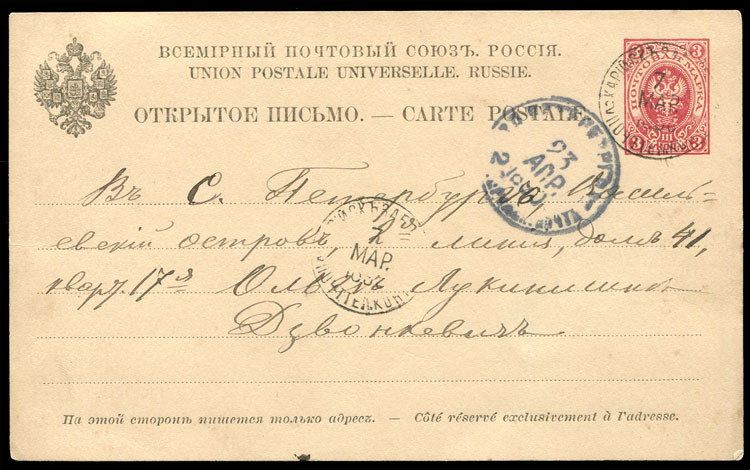 ВСЕМІРНЫЙ ПОЧТОВЫЙ СОЮЗЪ. РОССІЯ.
UNION POSTALE UNIVERSELLE. RUSSIE.
ОТКРЫТОЕ ПИСЬМО. — CARTE POSTALE
3 3
ПОЧТОВАЯ МАРКА
3 3
7
МАР.
23
АПР.
2
Въ С. Петербургъ, Василь-
евскій островъ, 2 линія, домъ 41,
МАР.
кварт. 17й Ольгѣ Лукинишнѣ
Дзвонкевичъ
На этой сторонѣ пишется только адресъ. — Côté réservé exclusivement à l'adresse.